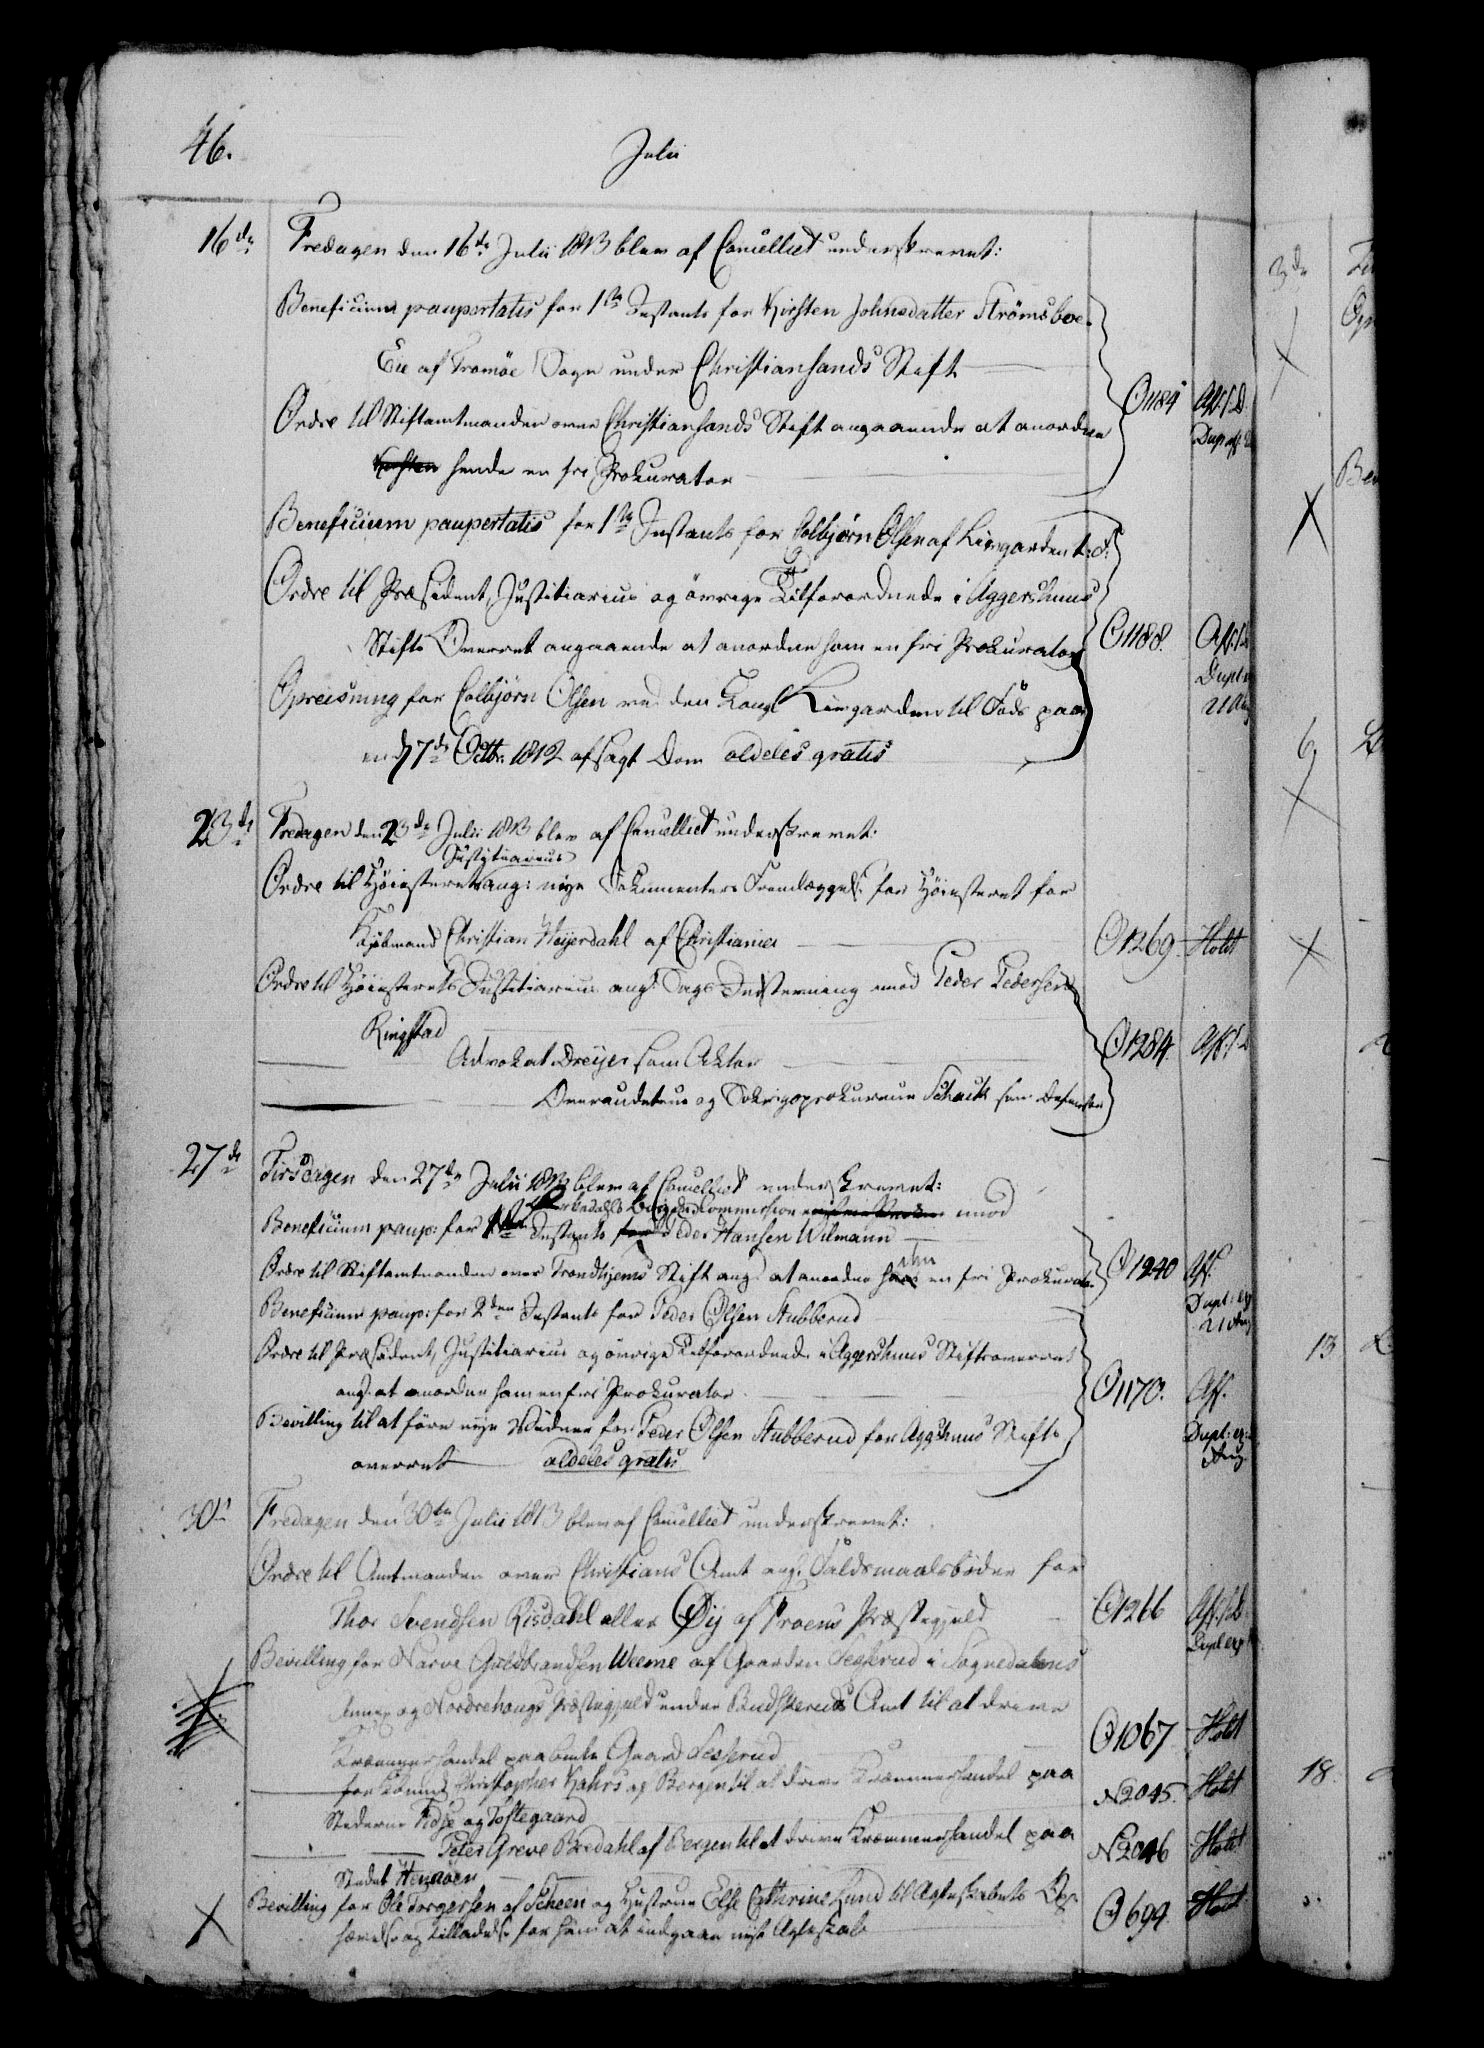 46.
Julii
16de Fredagen den 16de Julii 1813 blev af Cancelliet underskrevet:
Beneficium paupertatis for 1ste Instants for Kirsten Johnsdatter Strømsboe
Eie af Tromøe Sogn under Christiansands Stift
Ordre til Stiftamtmanden over Christiansands Stift angaaende at anordne O1184 Afs: S.D.
Kirsten hende en fri Prokurator Dup afs:
Beneficium paupertatis for 1ste Instants for Colbjørn Olsen af Liergarden t: F:
Ordre til Præsident, Justitiarius og øvrige Tilforordnede i Aggershuus
Stifts Overret angaaende at anordne ham en fri Prokurator O1188. Afs:
Opreisning for Colbjørn Olsen ved den Kongl Liergarden til Fods paa Dupl:
en d 7de Octbr: 1812 afsagt Dom aldeles gratis 21 Aug
23de Fredagen den 23de Julii 1813 blev af Cancelliet underskrevet:
Justitiarius
Ordre til Høiesteret ang: nye Dokumenters Fremlæggelse for Høiesteret for
Kjøbmand Christian Heyerdahl af Christiania O1269. Holdt
Ordre til Høiesterets Justitiarius ang: Sags Indstevning imod Peder Pedersen
Ringstad
Advokat Dreyer som Aktor O1284. Afs:
Overauditeur og Prokureur Schack som Defensor
27de Tirsdagen den 27de Julii 1813 blev af Cancelliet underskrevet:
Commission imod
Beneficium paup: for 1ste Instants for Peder Hansen Wilmann
ham
Ordre til Stiftamtmanden over Trondhjems Stift ang: at anordne en fri Prokurator O1240 Afs:
Beneficium paup: for 2den Instants for Peder Olsen Stubberud Dupl: 21 Aug
Ordre til Præsident, Justitiarius og øvrige Tilforordnede i Aggershuus Stiftsoverret
ang: at anordne ham en fri Prokurator O1170. Afs:
Bevilling til at føre nye Vidner for Peder Olsen Stubberud for Aggshuus Stifts Dupl:
overret aldeles gratis Aug.
30te Fredagen den 30te Julii 1813 blev af Cancelliet underskrevet:
Ordre til Amtmanden over Christians Amt ang: Faldsmaalsbøder for
Thor Svendsen Risdahl eller Øij af Froens Præstegjeld O1266 Afs: S.D.
Bevilling for Narve Guldbrandsen Weeme af Gaarden Sesserud i Sognedalens Dupl exp
Annex og Nordrehougs Præstegjeld under Buskeruds Amt til at drive
Kræmmerhandel paa bemte Gaard Sesserud O1067 Holdt
for Christopher Kahrs af Bergen til at drive Kræmmerhandel paa N2045. Holdt
Stederne Fedje og Toftegaard
Peter Greve Bredahl af Bergen til at drive Kræmmerhandel paa N2046 Holdt
Stedet Hennøen
Bevilling for Ole Torgersen af Scheen og Hustrue Else Cathrine Lund til Ægteskabets Op-
hævelse og Tilladelse for ham at indgaae nyt Ægteskab O694 Holdt
3de
6
13
18